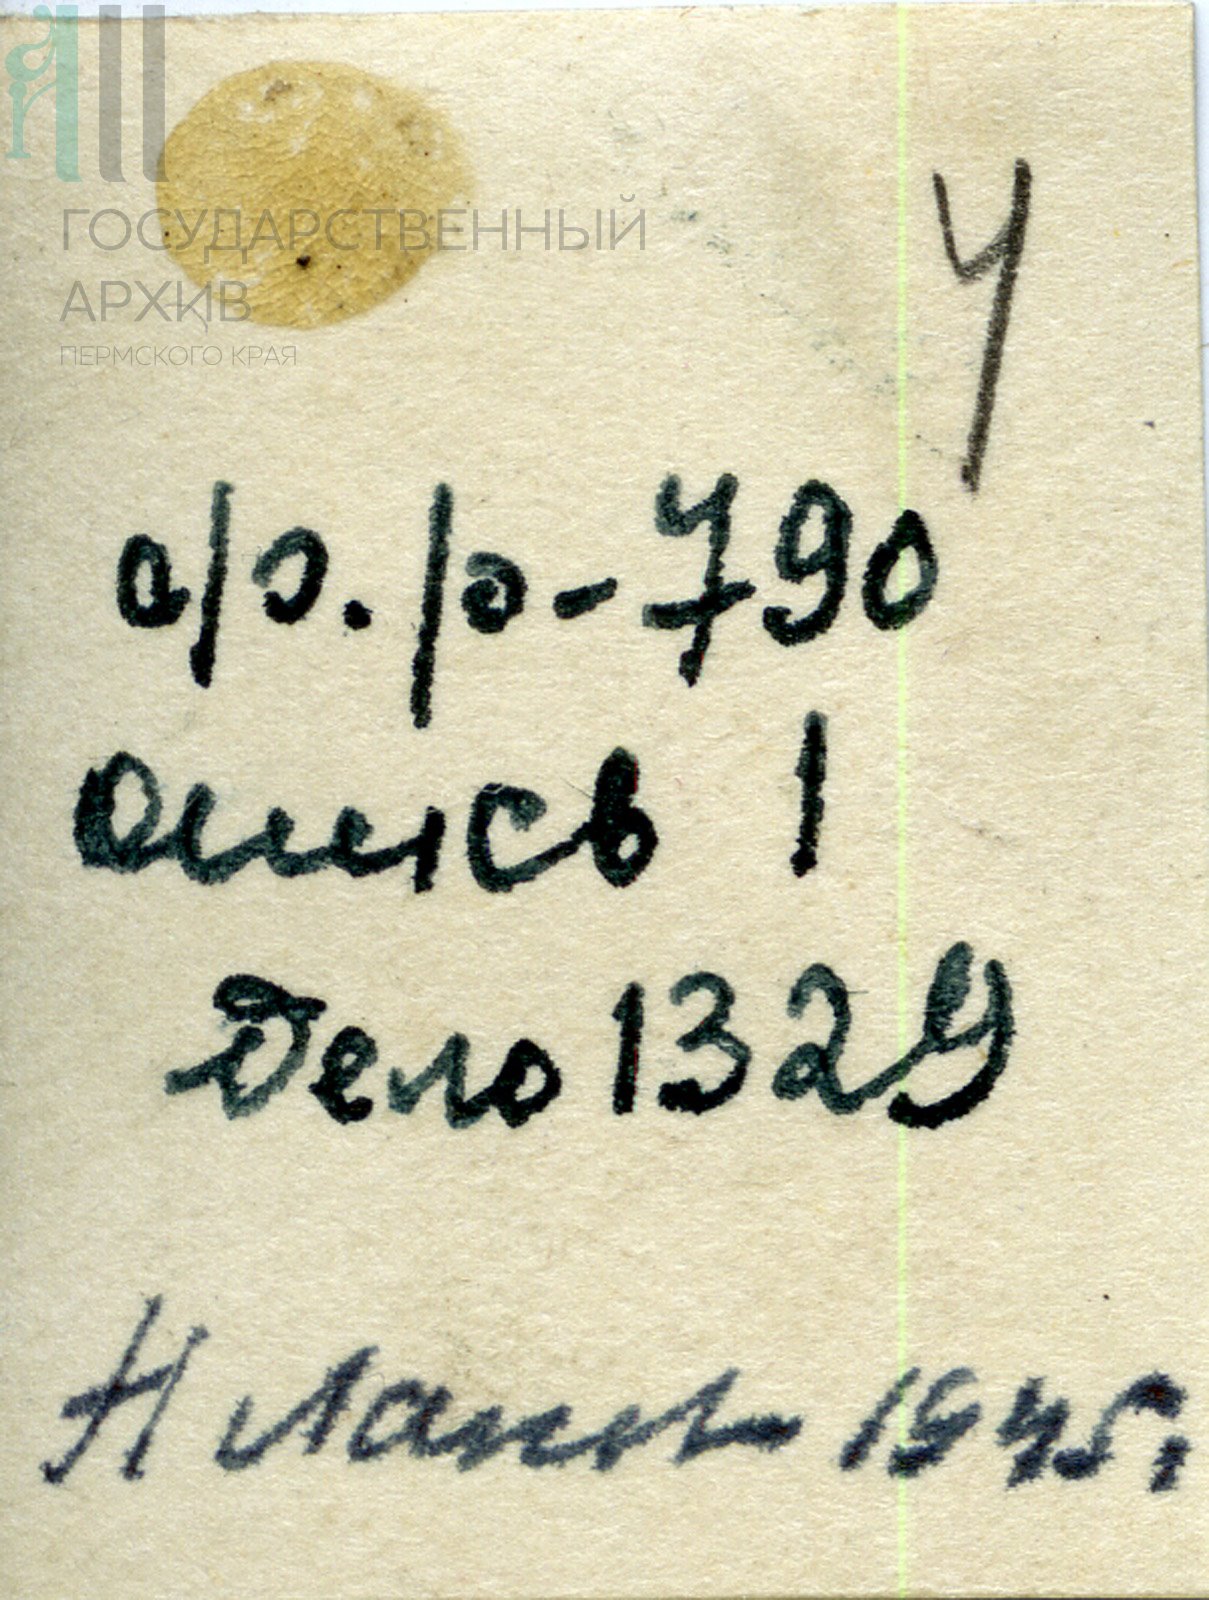 ГОСУДАРСТВЕННЫЙ
АРХИВ
ПЕРМСКОГО КРАЯ
ф. р-790
опись 1
дело 1329
1945г.